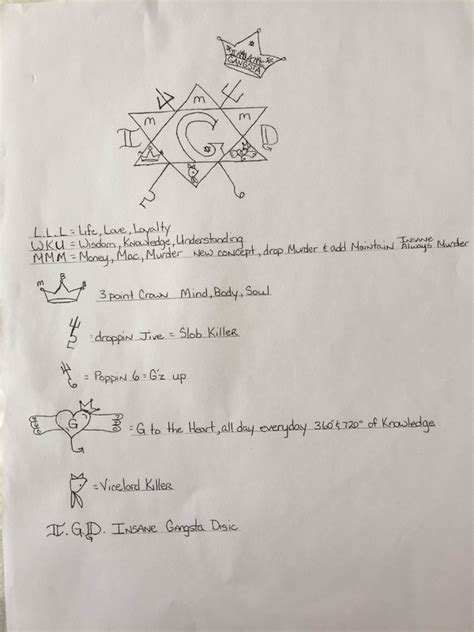 GANGSTA
m
m m
I G D
L.L.L = Life, Love, Loyalty
WKU = Wisdom, Knowledge, Understanding
MMM = Money, Mac, Murder New concept, drop Murder & add Maintain Insane Always Murder
M B S
3 point Crown Mind, Body, Soul
5 = droppin Jive = Slob Killer
6 = Poppin 6 = G'z up
G = G to the Heart, all day everyday 360° & 720° of Knowledge
= Vicelord Killer
I.G.D. Insane Gangsta Disic